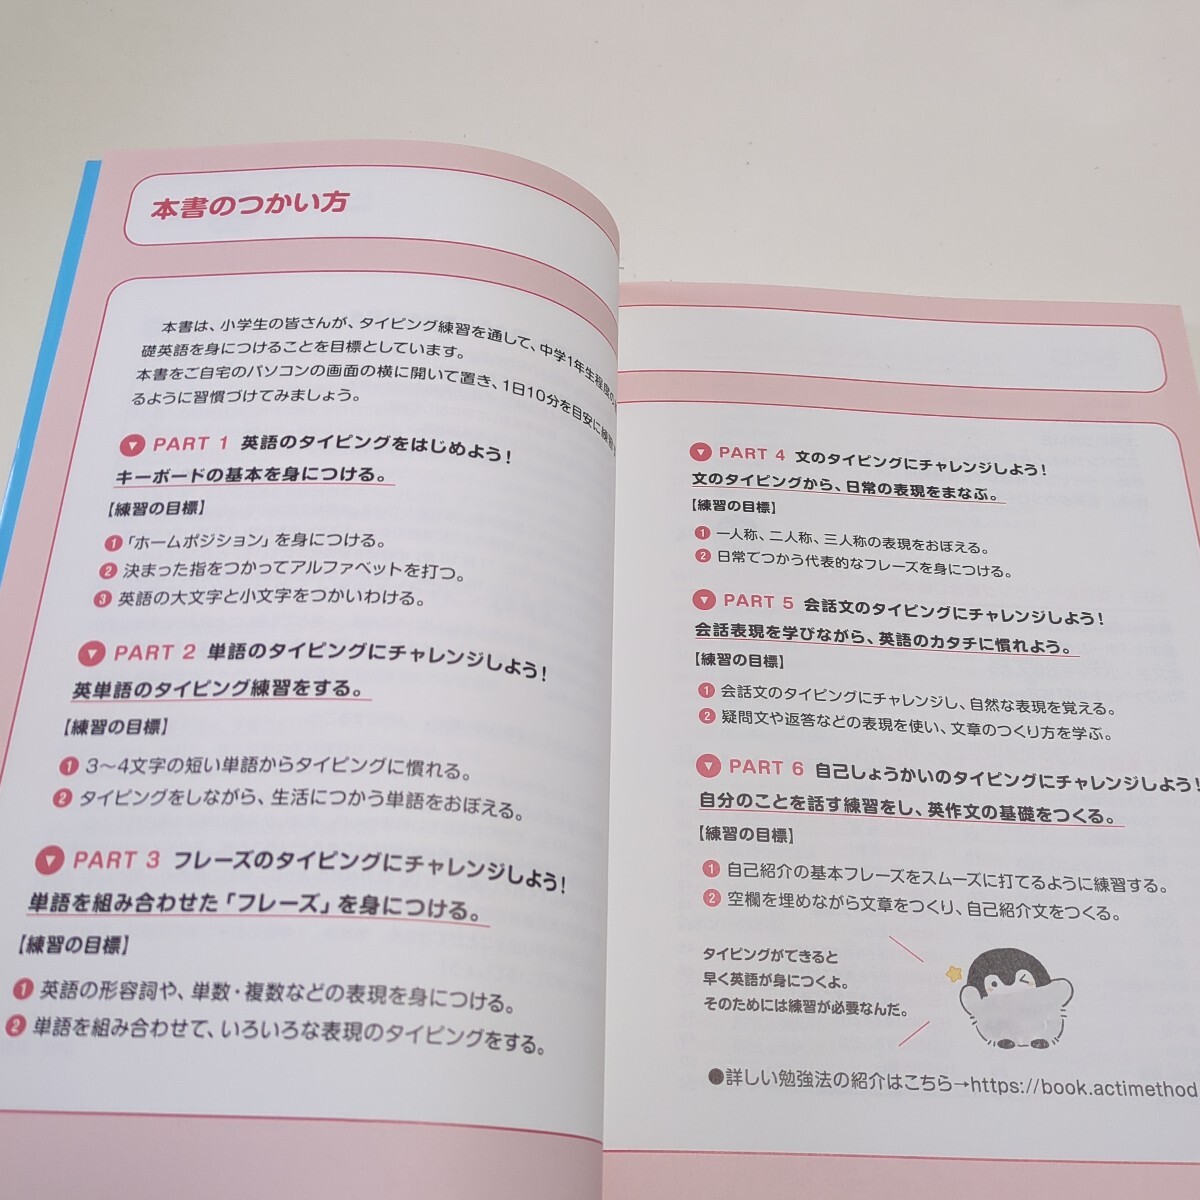 本書のつかい方
本書は、小学生の皆さんが、タイピング練習を通して、中学1年生程度の
礎英語を身につけることを目標としています。
本書をご自宅のパソコンの画面の横に開いて置き、1日10分を目安に練習
るように習慣づけてみましょう。
PART 1 英語のタイピングをはじめよう!
キーボードの基本を身につける。
【練習の目標】
❶「ホームポジション」を身につける。
❷ 決まった指をつかってアルファベットを打つ。
❸ 英語の大文字と小文字をつかいわける。
PART 2 単語のタイピングにチャレンジしよう!
英単語のタイピング練習をする。
【練習の目標】
❶ 3〜4文字の短い単語からタイピングに慣れる。
❷ タイピングをしながら、生活につかう単語をおぼえる。
PART 3 フレーズのタイピングにチャレンジしよう!
単語を組み合わせた「フレーズ」を身につける。
【練習の目標】
❶ 英語の形容詞や、単数・複数などの表現を身につける。
❷ 単語を組み合わせて、いろいろな表現のタイピングをする。
PART 4 文のタイピングにチャレンジしよう!
文のタイピングから、日常の表現をまなぶ。
【練習の目標】
❶ 一人称、二人称、三人称の表現をおぼえる。
❷ 日常でつかう代表的なフレーズを身につける。
PART 5 会話文のタイピングにチャレンジしよう!
会話表現を学びながら、英語のカタチに慣れよう。
【練習の目標】
❶ 会話文のタイピングにチャレンジし、自然な表現を覚える。
❷ 疑問文や返答などの表現を使い、文章のつくり方を学ぶ。
PART 6 自己しょうかいのタイピングにチャレンジしよう!
自分のことを話す練習をし、英作文の基礎をつくる。
【練習の目標】
❶ 自己紹介の基本フレーズをスムーズに打てるように練習する。
❷ 空欄を埋めながら文章をつくり、自己紹介文をつくる。
タイピングができると
早く英語が身につくよ。
そのためには練習が必要なんだ。
●詳しい勉強法の紹介はこちら→https://book.actimethod